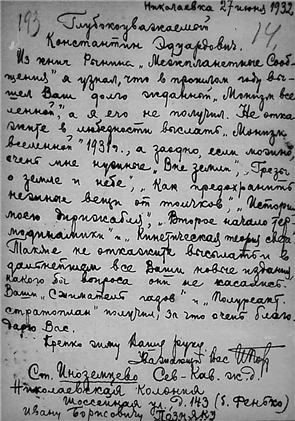 Николаевка 27 июня 1932
193
14,
Глубокоуважаемой
Константин Эдуардович.
Из книг Рынина „Межпланетные Сооб-
щения" я узнал, что в прошлом году вы-
шел Ваш долго жданной „Монизм все
ленной", а я его не получил. Не отка-
жите в любезности выслать „Монизм
вселенной" 1931г., а заодно если можно
очень мне нужные „Вне земли", „Грезы
о земле и небе", „Как предохранить
нежные вещи от толчков", „Истори
моего дирижабля", „Второе начало тер-
модинамики" и „Кинетическая теория света"
Также не откажите высылать и в
дальнейшем все Ваши новые издания
какого бы вопроса они не касались.
Ваши „Сжиматель газов" и „Полуреакт.
стратоплан" получил, за что очень благо-
дарю Вас.
Крепко жму Вашу руку
Уважающий Вас
Ст. Иноземцево Сев-Кав. ж.д.
Николаевская Колония
Шоссейная ул. Д. 143 (б. Фенько)
Ивану Борисовичу Позняку